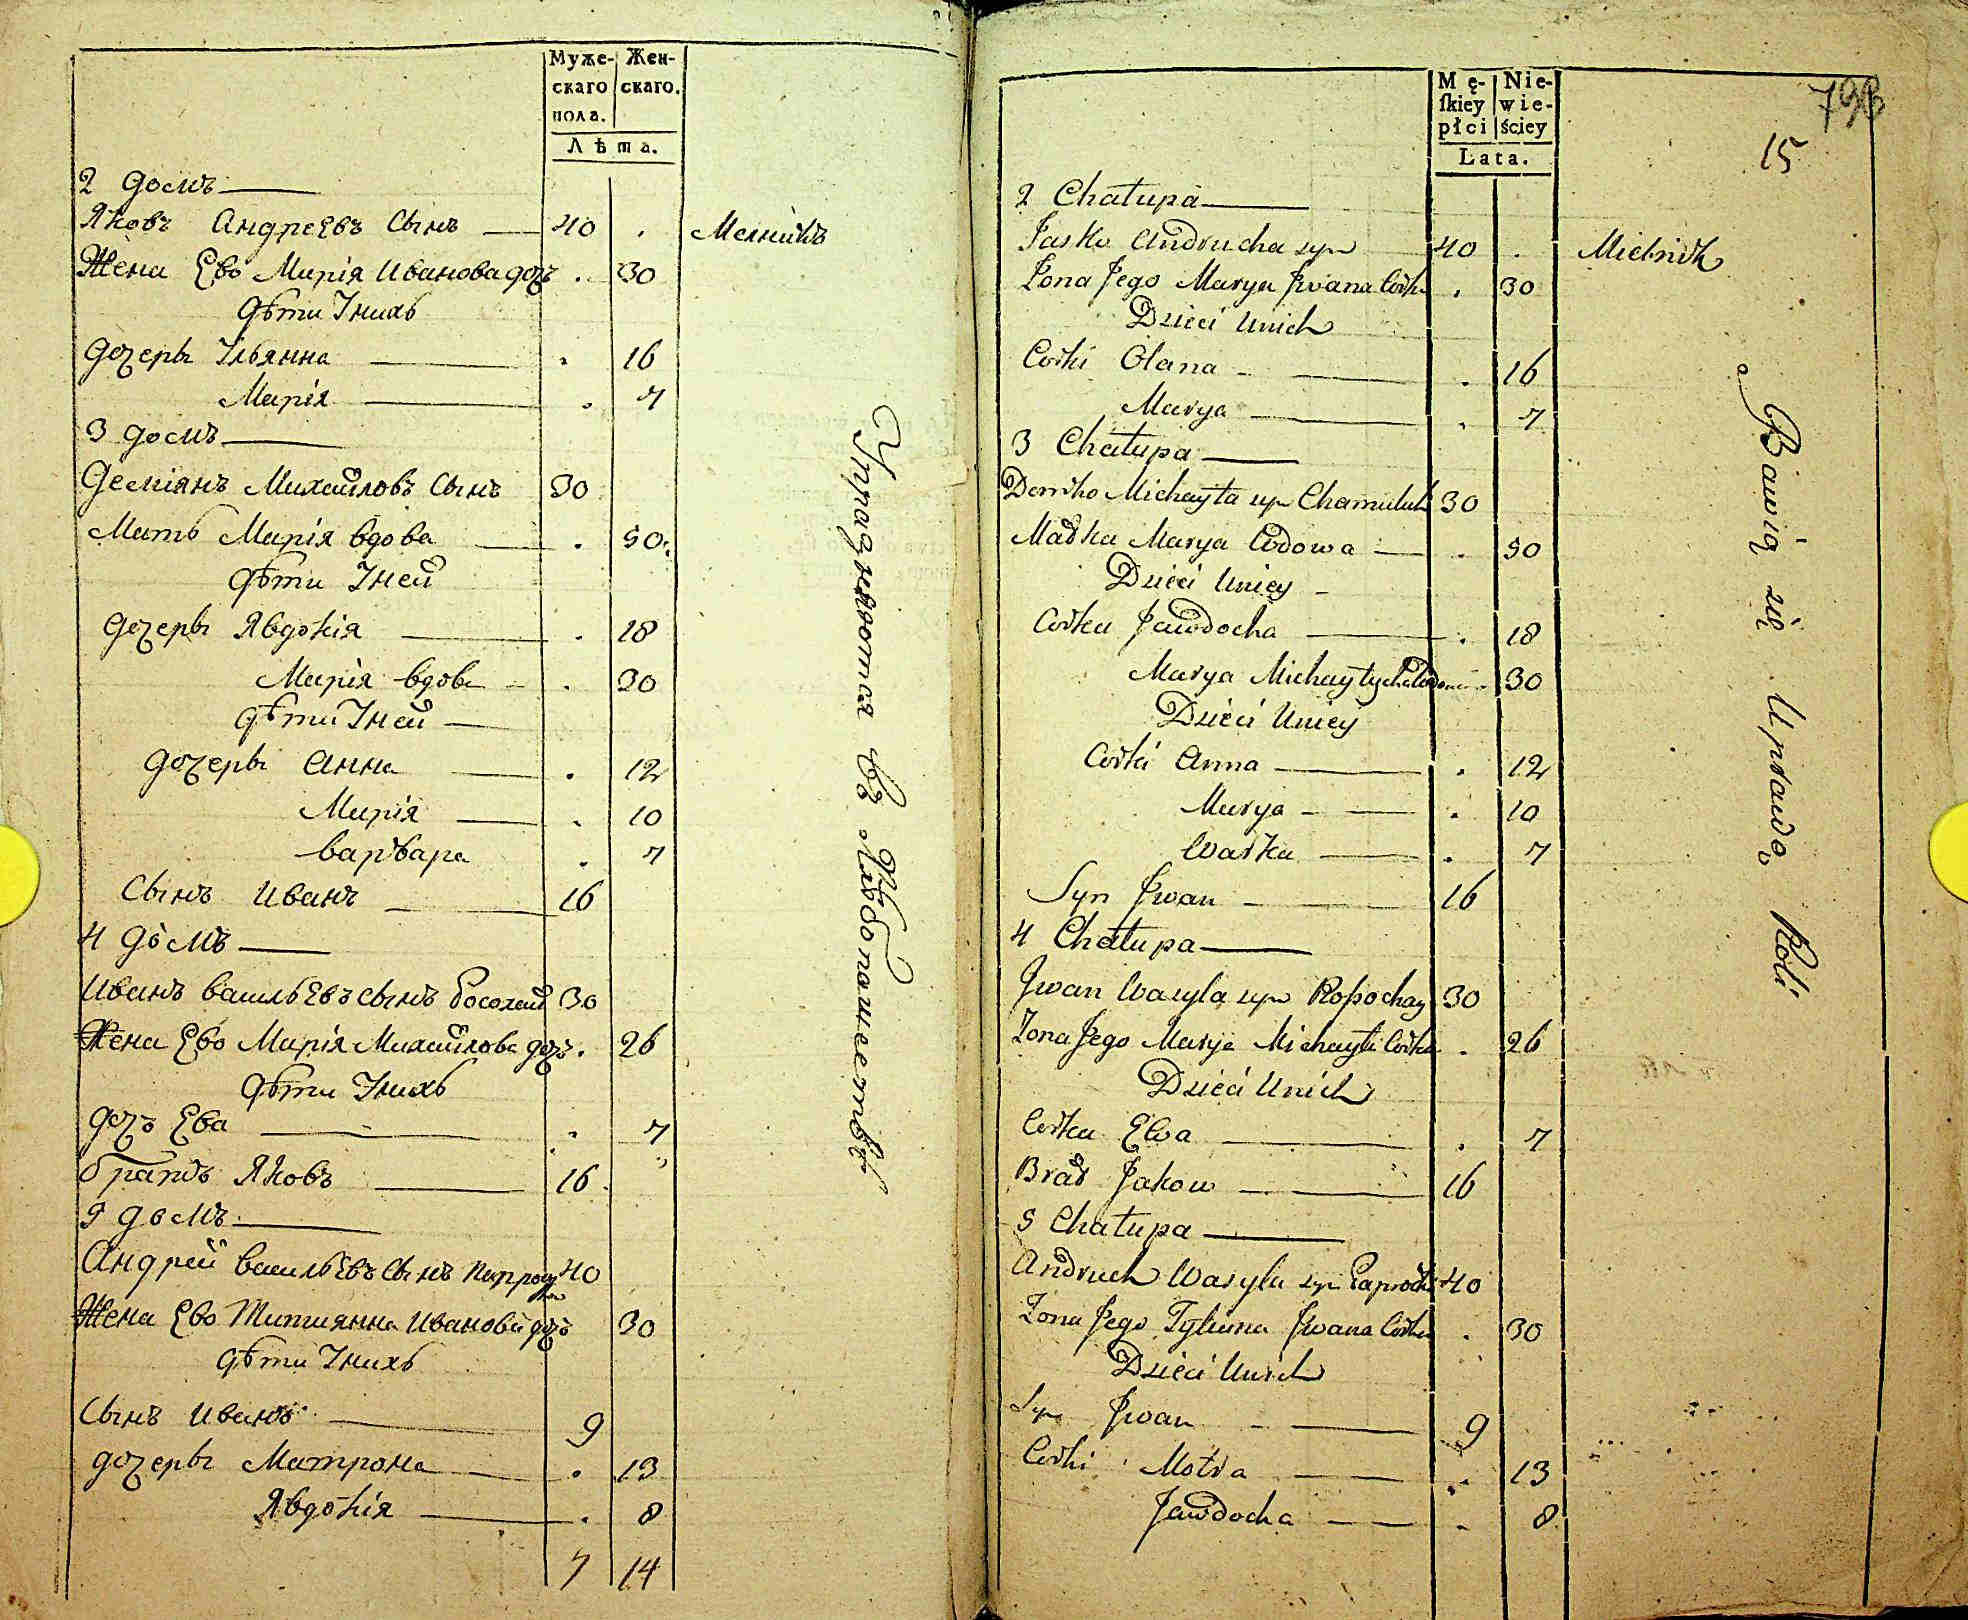 Муже- Жен-
скаго скаго.
пола.
Лѣта.
2 домъ
Яковъ Андреевъ сынъ 40 . Мелникъ
Жена Ево Марія Иванова доч . 30
дѣти Унихъ
дочеры Ульянна . 16
Марія . 7
3 домъ
Деміянъ Михайловъ сынъ 30
Мать Марія вдова . 50
дѣти Уней
дочеры Явдокія . 18
Марія вдова . 30
дѣти Уней
дочеры Анна . 12
Марія . 10
варвара . 7
сынъ Иванъ 16
4 домъ
Иванъ васильевъ сынъ 30
Жена Ево Марія Михайлова доч . 26
дѣти Унихъ
дочъ Ева . 7
братъ Яковъ 16
5 домъ
Андрей васильевъ сынъ 40
Жена Ево Татиянна Иванова доч 30
дѣти Унихъ
сынъ Иванъ 9
дочеры Матрона . 13
Явдокія . 8
7 14
Упражняются въ хлѣбопашествѣ
Mę- Nie-
ſkiey wie-
płci ściey
Lata.
798
15
2 Chałupa
Jasko Andrucha syn 40 . Mielnik
Żona Jego Marya Jwana Corka . 30
Dzieci Unich
Corki Olana . 16
Marya . 7
3 Chałupa
Demko Michayła syn 30
Matka Marya Wdowa . 50
Dzieci Uniey
Corka Jawdocha . 18
Marya . 30
Dzieci Uniey
Corki Anna . 12
Marya . 10
Warka . 7
Syn Jwan 16
4 Chałupa
Jwan Wasyla syn 30
Zona Jego Marya Michayła Corka . 26
Dzieci Unich
Corka Ewa . 7
Brat Jakow 16
5 Chałupa
Andruch Wasyla syn 40
Zona Jego Jwana Corka . 30
Dzieci Unich
Syn Jwan 9
Corki Motra . 13
Jawdocha . 8
Bawią się Uprawą Roli